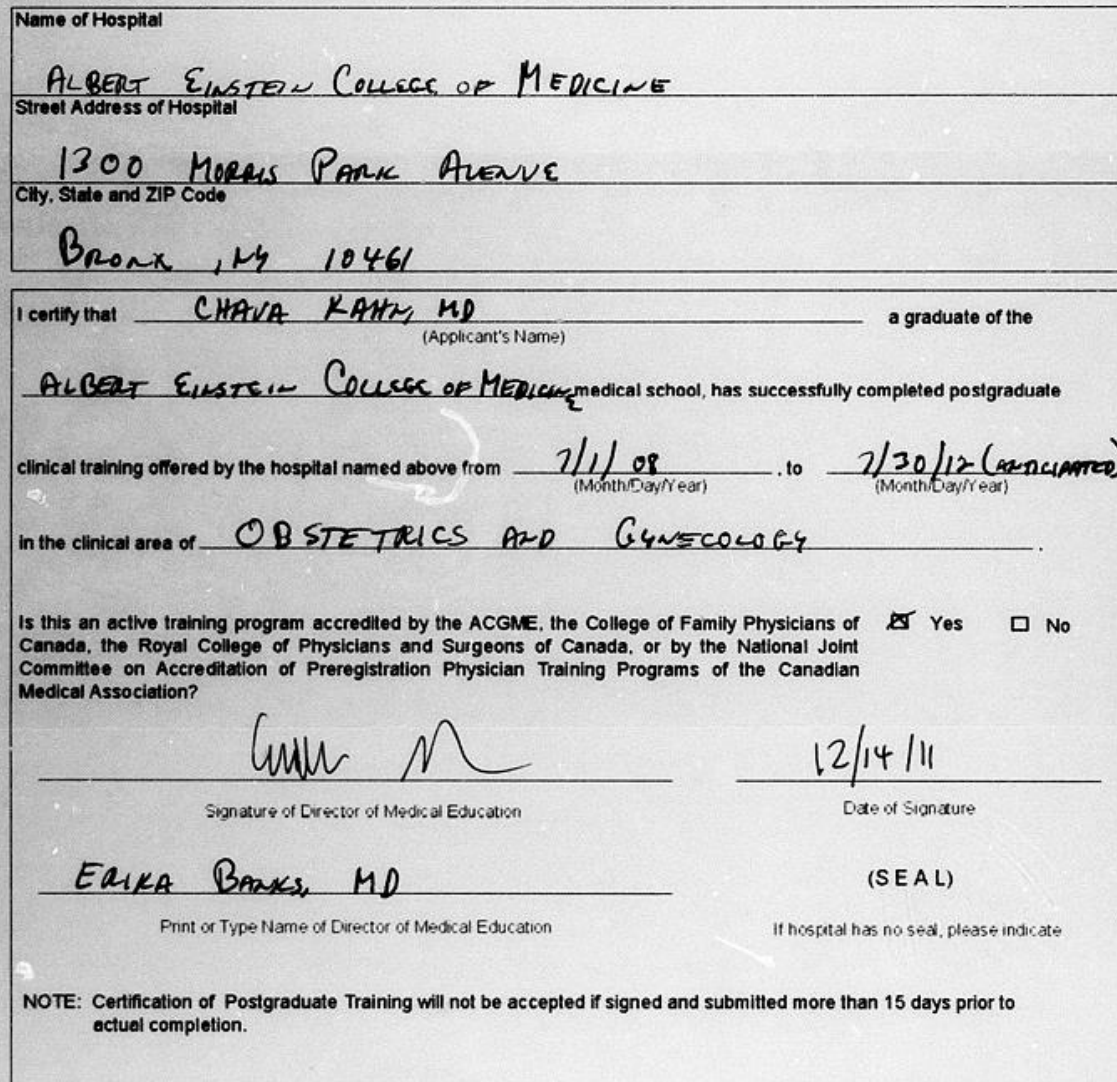 Name of Hospital
ALBERT EINSTEIN COLLEGE OF MEDICINE
Street Address of Hospital
1300 MORRIS PARK AVENUE
City, State and ZIP Code
BRONX, NY 10461
I certify that CHAVA KAHN, MD a graduate of the
(Applicant's Name)
ALBERT EINSTEIN COLLEGE OF MEDICINE medical school, has successfully completed postgraduate
clinical training offered by the hospital named above from 7/1/08 . to 7/30/12 (ANTICIPATED)
(Month/Day/Year) (Month/Day/Year)
in the clinical area of OBSTETRICS AND GYNECOLOGY .
Is this an active training program accredited by the ACGME, the College of Family Physicians of ☒ Yes ☐ No
Canada, the Royal College of Physicians and Surgeons of Canada, or by the National Joint
Committee on Accreditation of Preregistration Physician Training Programs of the Canadian
Medical Association?
12/14/11
Signature of Director of Medical Education Date of Signature
ERIKA BANKS, MD (SEAL)
Print or Type Name of Director of Medical Education If hospital has no seal, please indicate
NOTE: Certification of Postgraduate Training will not be accepted if signed and submitted more than 15 days prior to
actual completion.